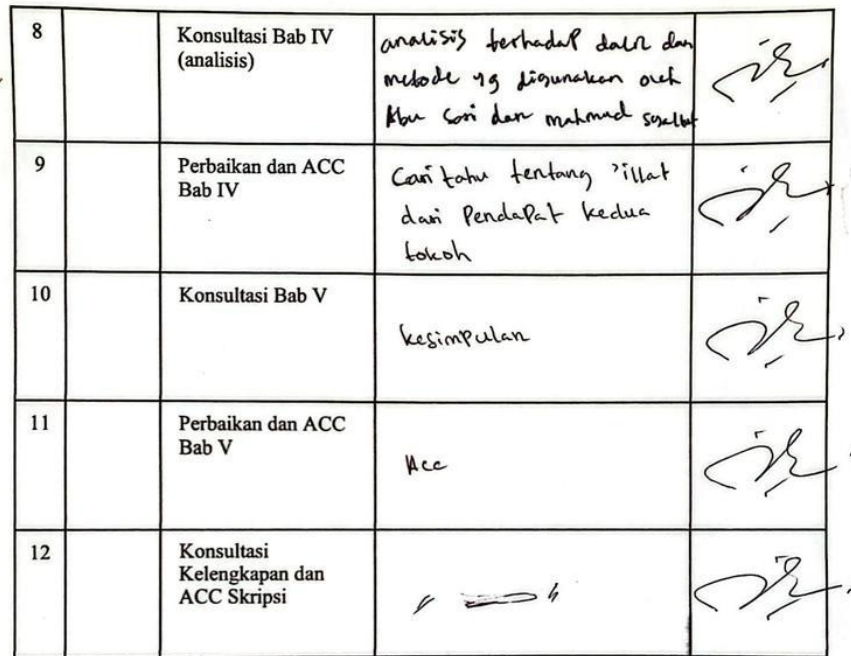 8
Konsultasi Bab IV
(analisis)
analisis terhadap dalil dan
metode yg digunakan oleh
Abu Sari dan mahmud syaltut
9
Perbaikan dan ACC
Bab IV
Cari tahu tentang 'illat
dari Pendapat kedua
tokoh
10
Konsultasi Bab V
kesimpulan
11
Perbaikan dan ACC
Bab V
Acc
12
Konsultasi
Kelengkapan dan
ACC Skripsi